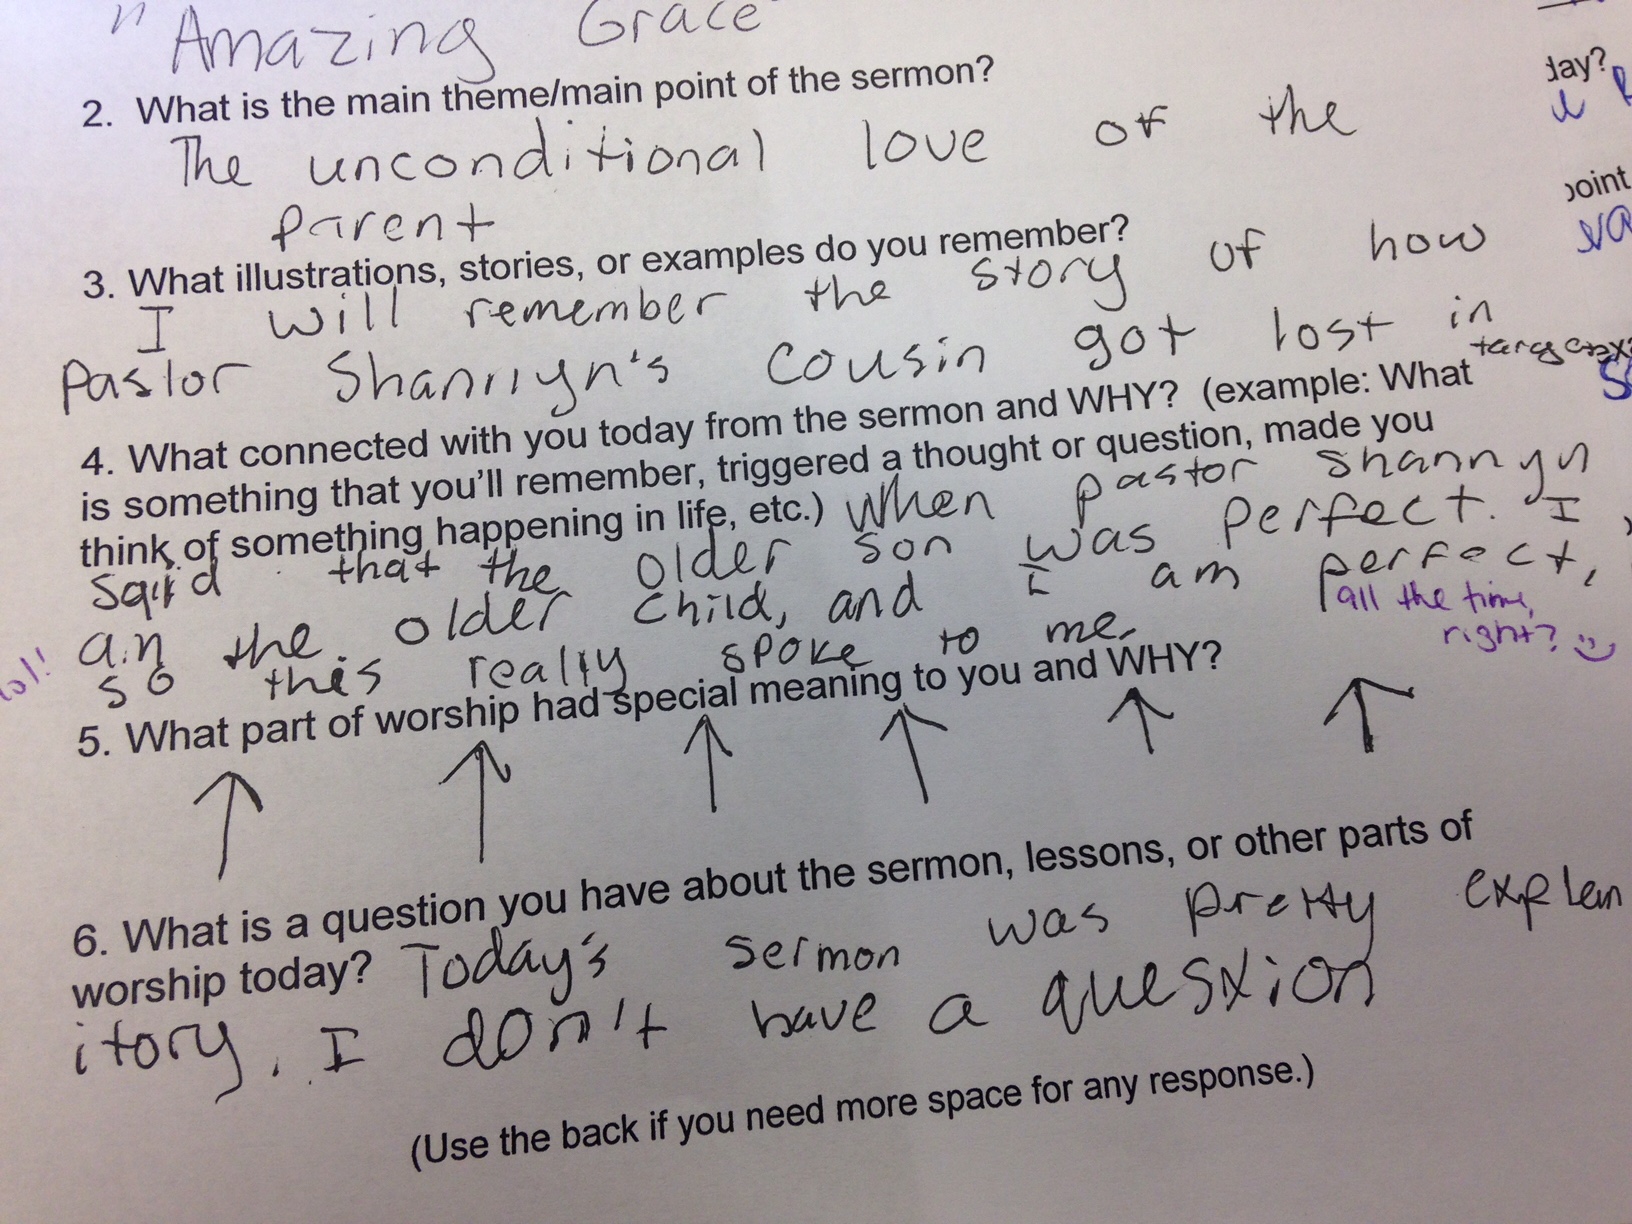 "Amazing Grace
2. What is the main theme/main point of the sermon?
The unconditional love of the
parent
3. What illustrations, stories, or examples do you remember?
I will remember the story of how
Pastor Shannyn's cousin got lost in
4. What connected with you today from the sermon and WHY? (example: What
is something that you'll remember, triggered a thought or question, made you
think of something happening in life, etc.) When pastor shannyn
said that the older son was perfect. I
am the older child, and I am perfect,
all the time,
right?
so this really spoke to me.
lol!
5. What part of worship had special meaning to you and WHY?
6. What is a question you have about the sermon, lessons, or other parts of
worship today? Today's sermon was pretty explan
itory. I don't have a question
(Use the back if you need more space for any response.)
day?
point